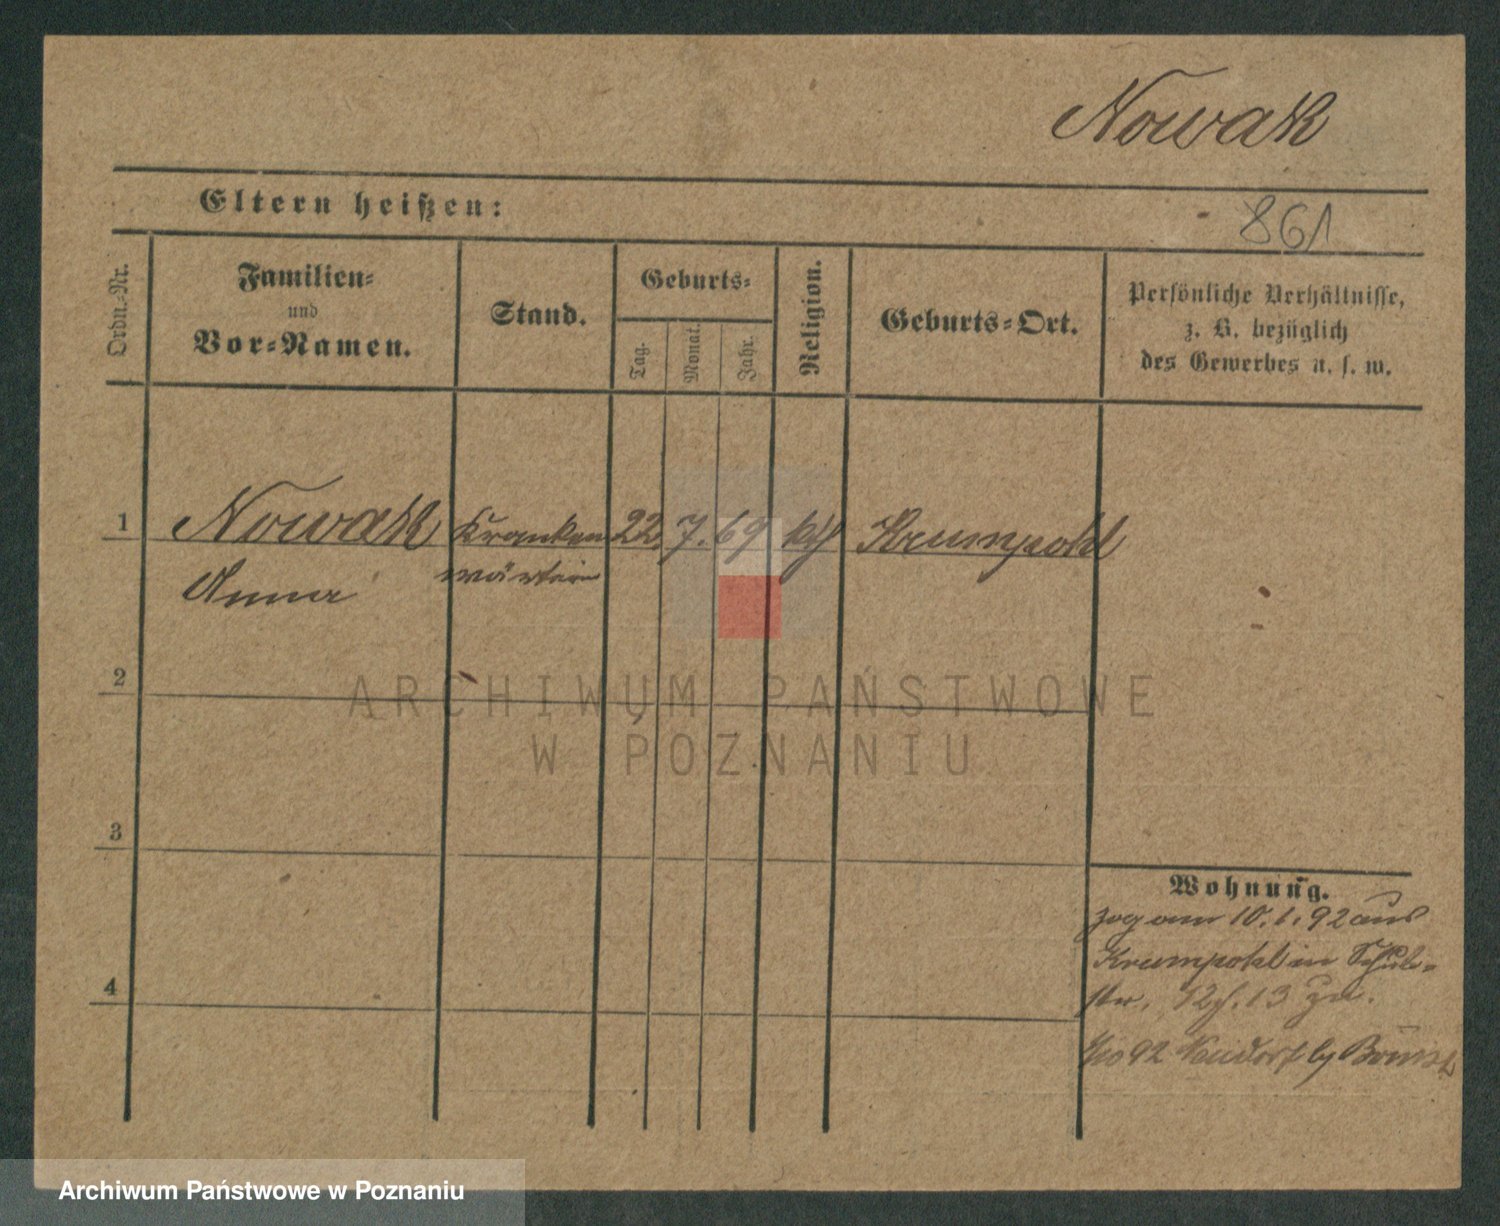 Nowak
Eltern heißen:
861
Ordn.-Nr.
Familien-
und
Vor-Namen.
Stand.
Geburts-
Tag.
Monat.
Jahr.
Religion.
Geburts-Ort.
Persönliche Verhältnisse,
z. B. bezüglich
des Gewerbes u. s. w.
1
Nowak
Kranken
22. 7. 69
kth
Krumpohl
Anna
wärterin
2
ARCHIWUM PAŃSTWOWE
W POZNANIU
3
Wohnung.
zog am 10. 1. 92 aus
Krumpohl in Schul-
str. 12 13 zu.
4
92 Naudorf
Archiwum Państwowe w Poznaniu